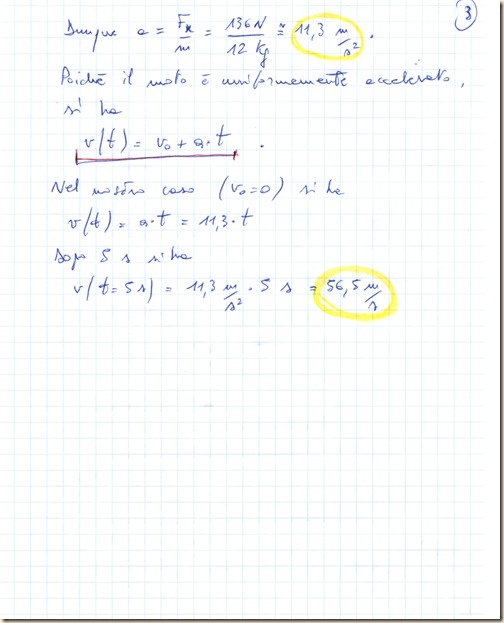 3
Dunque a = Fx/m = 136 N / 12 kg ≅ 11,3 m/s².
Poichè il moto è uniformemente accelerato,
si ha
v(t) = v₀ + a·t .
Nel nostro caso (v₀=0) si ha
v(t) = a·t = 11,3·t
Dopo 5 s si ha
v(t=5s) = 11,3 m/s² · 5 s = 56,5 m/s